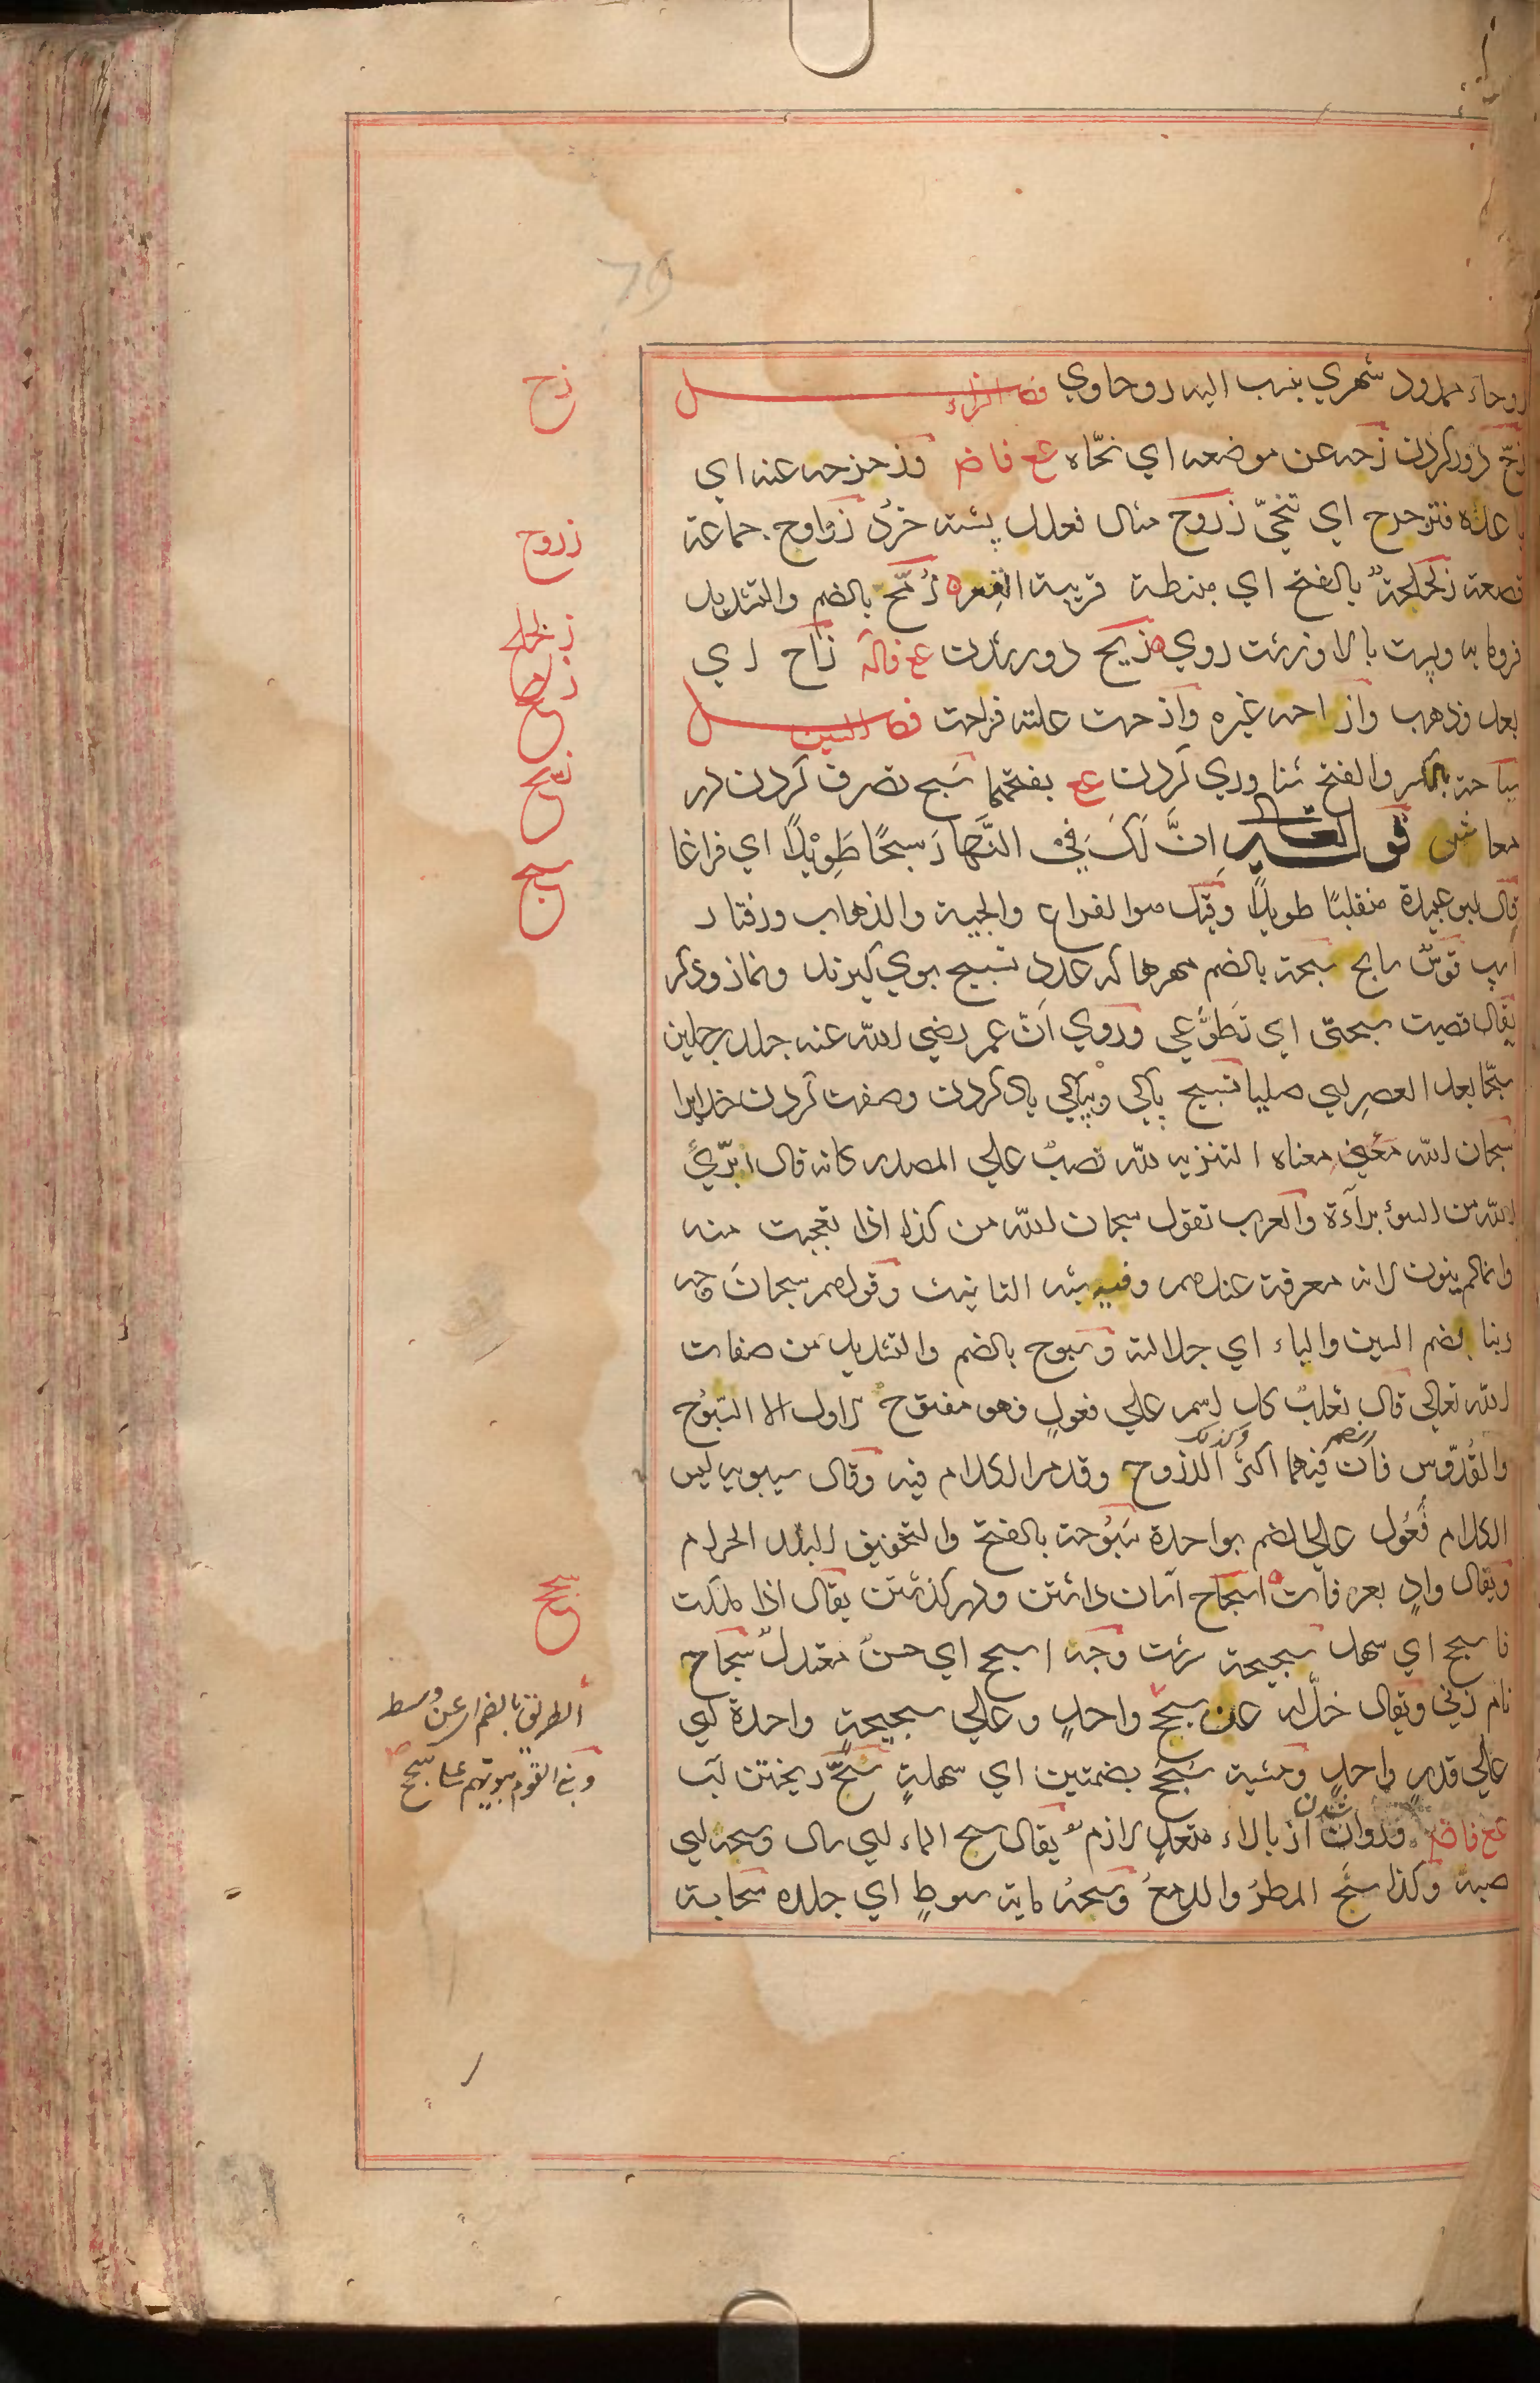 روحاء ممدود شهري ينسب اليه روحاوي فصل الزاء
زحّ دور كردن زحه عن موضعه اي نحّاه ع فاض وزحزحه عنه اي
باعده فتزحزح اي تنحّي زروح مثال فعلل پشته خرد زراوح جماعة
قصعة زلحلحة بالفتح اي منبطة قريبة القعره زُمّح بالضم والتشديد
فرومايه وپست بالا وزشت روي زيح دور شدن ع فاله زاح اي
بعد وذهب وازاحه غيره وازحت علته فزاحت فصل السين
سباحة بالكسر والفتح شناوري كردن ع بفتحهما سَبح تصرف كردن در
معاش قوله تعالي اِنَّ لَكَ فِي النَّهَارِ سَبحًا طَوِيْلًا اي فراغا
قال ابو عبيدة منقلبًا طويلًا وقيل هو الفراغ والجيئة والذهاب ورفتار
اسپ فرسٌ سابح سُبحة بالضم مهرها كه عدد تسبيح بوي گيرند ونماز وذكر
يقال قضيت سبحتي اي تَطَوُّعي وروي اَنّ عمر رضي الله عنه جلد رجلين
سبّحا بعد العصر اي صليا تسبيح پاكي وبپاكي ياد كردن وصفت كردن خدايرا
سُبحان الله معناه التنزيه لله نصبٌ علي المصدر كانه قال اُبرّئُ
الله من السوء برآءة والعرب تقول سبحان الله من كذا اذا تعجبت منه
وانما لم ينون لانه معرفة عندهم وفيه شبه التانيث وقولهم سبحانَ وجه
ربنا بضم السين والباء اي جلالته وسُبوح بالضم والتشديد من صفات
الله تعالي قال ثعلبٌ كل اسم علي فعولٍ فهو مفتوح الاول الا السُبّوح
والقُدّوس فان الضم فيهما اكثر وكذلك الذروح وقد مر الكلام فيه وقال سيبويه ليس
الكلام فُعُول علي الضم بواحدة سَبُوحة بالفتح والتخفيف البلد الحرام
ويقال وادٍ بعرفات اسجاح آسان داشتن ودر گذشتن يقال اذا ملكت
فاسجح اي سهل سجيحة سرشت وجه اسجح اي حسنٌ معتدلٌ سَجاح
نام زني ويقال خلّ له عن سجحٍ واحدٍ وعلي سجيحةٍ واحدة اي
علي قدرٍ واحدٍ ومشية سُجُح بضمتين اي سهلةٍ سَحّ ريختن آب
ع فاض وروان شدن از بالاء متعدٍ لازم يقال سح الماء اي سال وسحه اي
صبه وكذا سَحّ المطرُ والدمعُ وسحه ماية سوطٍ اي جلده سحابة
زح
زروح
زلحلح
زيح
سبح
سجح
الطريق بالضم اي عن وسط
وبني القوم بيوتهم علي سجح